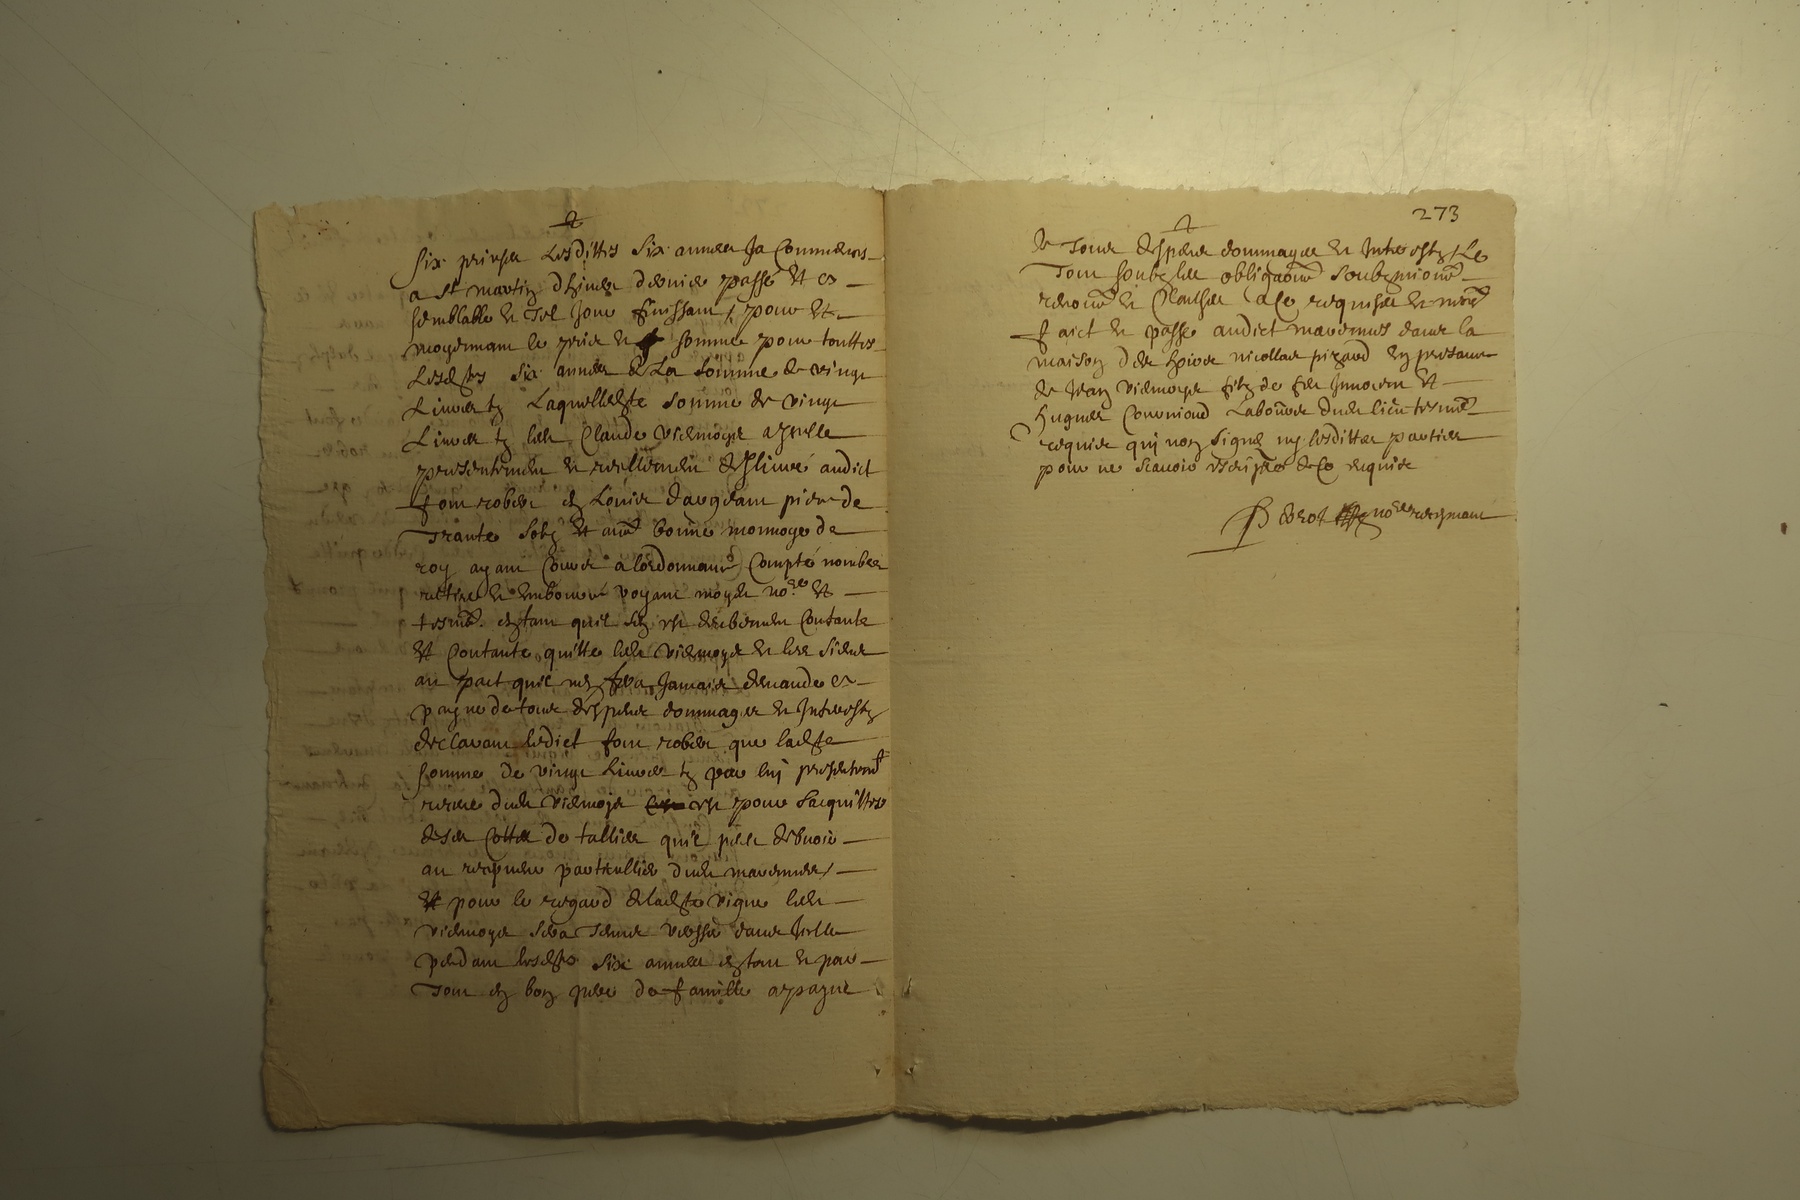 six prinses lesdittes six années Ja Commencés
a st martin dhiuer dernier passé et en
semblable et tel Jour finissant, pour et
moyennant le prix et somme pour touttes
lesdtes six années de La somme de vingt
Liures tz Laquelledte somme de vingt
Liures tz ledt Claude viermoye a
presentement et reellement deliuré audict
robert en Louis dargeant piece de
trante solz et aut bonne monnoye de
roy ayant Cours a lordonnance Compté nombré
retiré et emboursé voyant moyd nore et
tesmo. en tant quil sen est Contante
et Contante quitte ledt viermoye et les siens
au pact quil nen fera Jamais demande en
payne de tous despens dommages et Interestz
declarant ledict robert que ladte
somme de vingt Liures tz par luy presentemt
receue dudt viermoye est pour sacquitter
de ses Cottes de tallies quil peut debuoir
au particullier dudt
et pour le regard de ladte vigne ledt
viermoye sera tenu dans Icelle
pendant lesdtes six années en tout et par
tout en bon pere de famille a payne
273
de tous despens dommages et Interestz Le
tout soubz les obligaons soubzmions
renons et Clauses a Ce requises et
faict et passé audict dans la
maison des hoirs nicollas pirard en presance
de Jean viermoye filz de feu Innocent et
hugues Laboureur dudt lieu tesmo
requis qui non signé ny lesdittes parties
pour ne scauoir escripre de Ce requise
nore